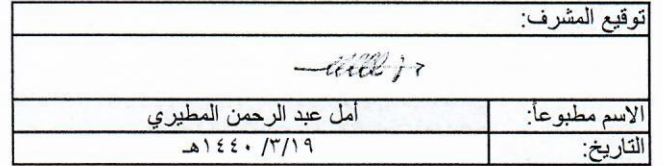 توقيع المشرف:
الاسم مطبوعاً: أمل عبد الرحمن المطيري
التاريخ: ١٤٤٠/٣/١٩هـ